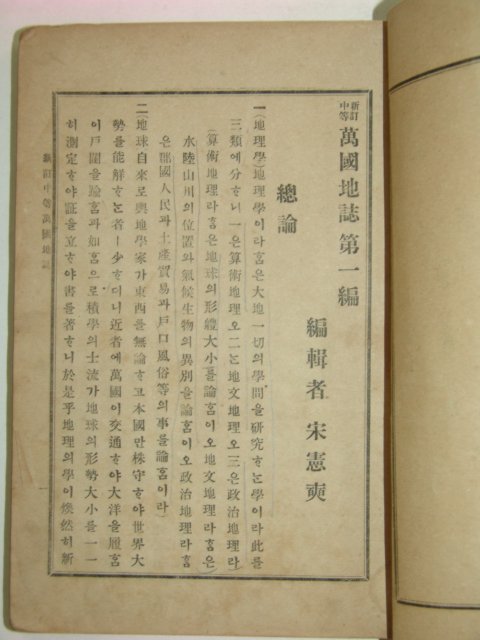 新訂中等 萬國地誌 第一編
編輯者 宋憲奭
總論
一(地理學)地理學이라홈은大地一切의學問을硏究ᄒᆞᄂᆞᆫ學이라此를
三類에分ᄒᆞ니一은算術地理오二ᄂᆞᆫ地文地理오三은政治地理라
(算術地理라홈은地球의形體大小를論홈이오地文地理라홈은
水陸山川의位置와氣候生物의異別을論홈이오政治地理라홈
은邦國人民과土產貿易과戶口風俗等의事를論홈이라)
二(地球自來로輿地學家가東西를無論ᄒᆞ고本國만株守ᄒᆞ야世界大
勢를能解ᄒᆞᄂᆞᆫ者ㅣ少ᄒᆞ더니近者에萬國이交通ᄒᆞ야大洋을履홈
이戶閾을踰홈과如홈으로積學의士流가地球의形勢大小를一一
히測定ᄒᆞ야証을立ᄒᆞ야書를著ᄒᆞ니於是乎地理의學이煥然히新
新訂中等萬國地誌
一